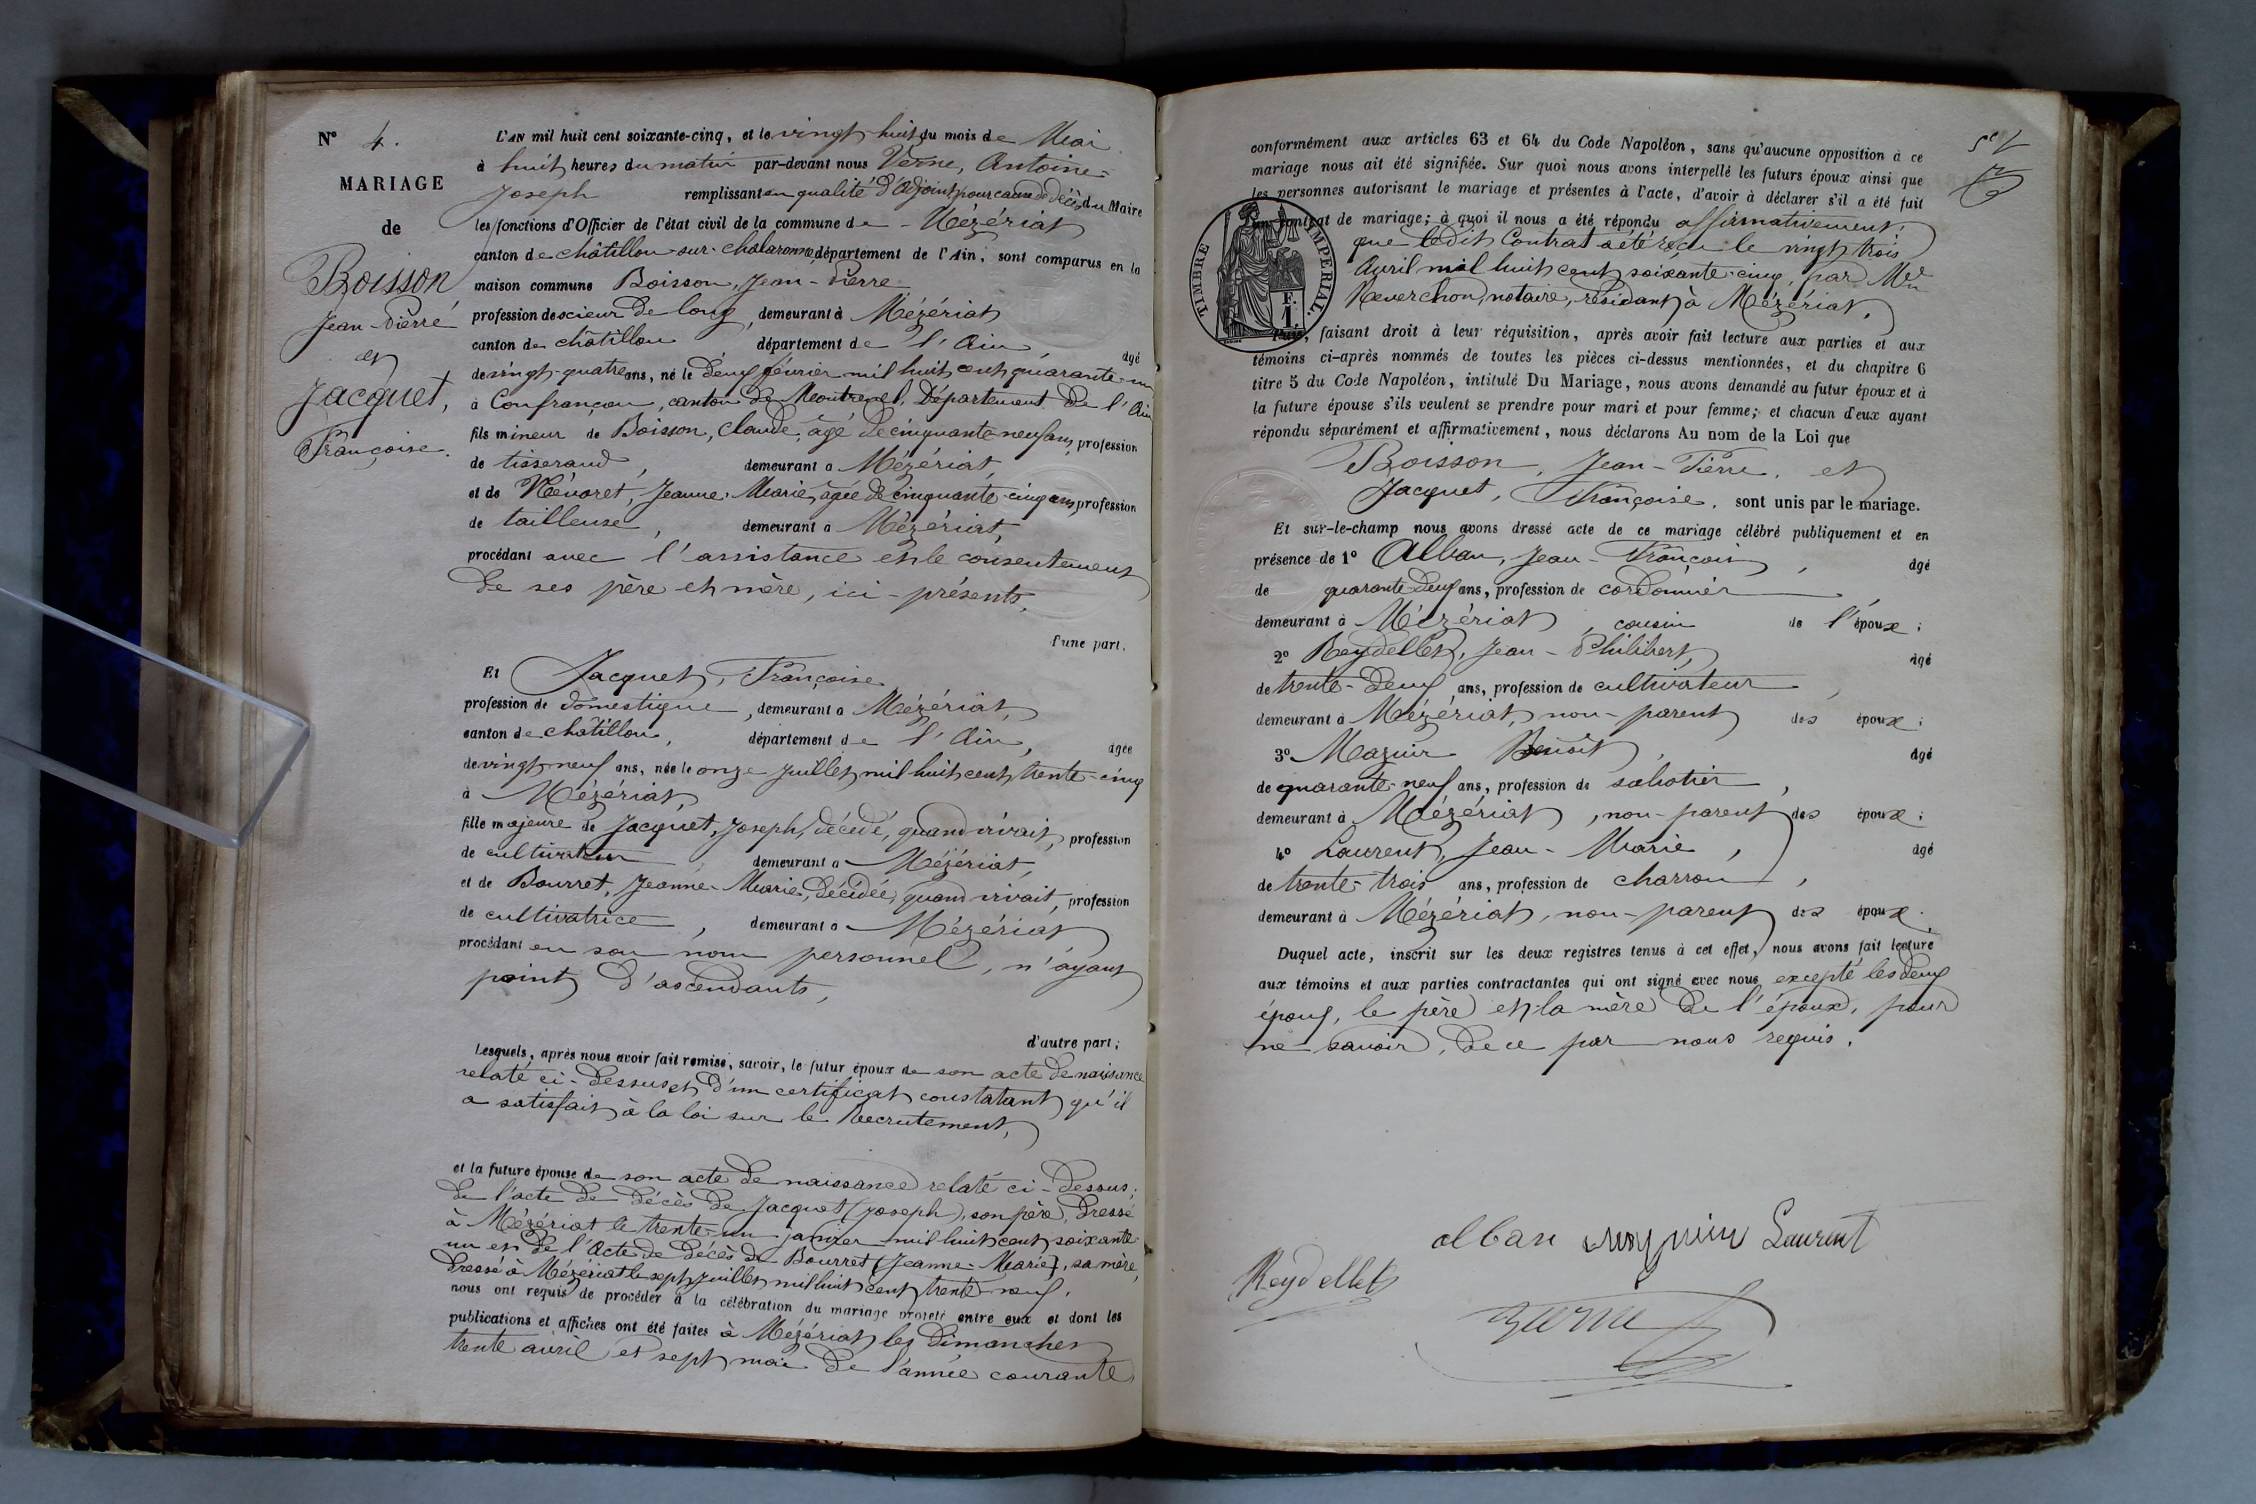 N° 4.
MARIAGE
de
Boisson
Jean-Pierre
et
Jacquet,
Françoise.
L'AN mil huit cent soixante-cinq, et le vingt-huit du mois de Mai
à huit heures du matin par-devant nous Verne, Antoine-
Joseph remplissant en qualité d'adjoint, pour cause de décès du Maire
les fonctions d'Officier de l'état civil de la commune de Mézériat
canton de châtillon-sur-chalaronne département de l'Ain, sont comparus en la
maison commune Boisson, Jean-Pierre
profession de scieur de long, demeurant à Mézériat
canton de châtillon département de l'Ain, âgé
de vingt-quatre ans, né le deux février mil huit cent quarante-un
à Confrançon, canton de Montrevel, Département de l'Ain
fils mineur de Boisson, Claude, âgé de cinquante-neuf ans, profession
de tisserand, demeurant à Mézériat,
et de Névoret, Jeanne-Marie, âgée de cinquante-cinq ans, profession
de tailleuse, demeurant à Mézériat,
procédant avec l'assistance et le consentement
de ses père et mère, ici-présents,
d'une part.
Et Jacquet, Françoise
profession de domestique, demeurant à Mézériat,
canton de châtillon, département de l'Ain, âgée
de vingt-neuf ans, née le onze juillet mil huit cent trente-cinq
à Mézériat,
fille majeure de Jacquet, Joseph, décédé, quand vivait, profession
de cultivateur, demeurant à Mézériat,
et de Bourret, Jeanne-Marie, décédée, quand vivait, profession
de cultivatrice, demeurant à Mézériat
procédant en son nom personnel, n'ayant
point d'ascendants,
d'autre part;
Lesquels, après nous avoir fait remise, savoir, le futur époux de son acte de naissance
relaté ci-dessus et d'un certificat constatant qu'il
a satisfait à la loi sur le Recrutement,
et la future épouse de son acte de naissance relaté ci-dessus;
de l'acte de décès de Jacquet (Joseph), son père, dressé
à Mézériat le trente-un janvier mil huit cent soixante-
un et de l'Acte de décès de Bourret (Jeanne-Marie), sa mère,
dressé à Mézériat le sept juillet mil huit cent trente-neuf,
nous ont requis de procéder à la célébration du mariage projeté entre eux et dont les
publications et affiches ont été faites à Mézériat les dimanches
trente avril et sept mai de l'année courante,
conformément aux articles 63 et 64 du Code Napoléon, sans qu'aucune opposition à ce
mariage nous ait été signifiée. Sur quoi nous avons interpellé les futurs époux ainsi que
les personnes autorisant le mariage et présentes à l'acte, d'avoir à déclarer s'il a été fait
un contrat de mariage; à quoi il nous a été répondu affirmativement,
que ledit Contrat a été reçu le vingt-trois
Avril mil huit cent soixante-cinq, par Me
Neverchon, notaire, résidant à Mézériat.
TIMBRE IMPÉRIAL
1 F.
Puis, faisant droit à leur réquisition, après avoir fait lecture aux parties et aux
témoins ci-après nommés de toutes les pièces ci-dessus mentionnées, et du chapitre 6
titre 5 du Code Napoléon, intitulé Du Mariage, nous avons demandé au futur époux et à
la future épouse s'ils veulent se prendre pour mari et pour femme; et chacun d'eux ayant
répondu séparément et affirmativement, nous déclarons Au nom de la Loi que
Boisson, Jean-Pierre, et
Jacquet, Françoise, sont unis par le mariage.
Et sur-le-champ nous avons dressé acte de ce mariage célébré publiquement et en
présence de 1° Alban, Jean-François, âgé
de quarante-deux ans, profession de cordonnier,
demeurant à Mézériat, cousin de l'époux;
2° Reydellet, Jean-Philibert, âgé
de trente-deux ans, profession de cultivateur,
demeurant à Mézériat, non-parent des époux;
3° Maguin Benoît, âgé
de quarante-neuf ans, profession de sabotier,
demeurant à Mézériat, non-parent des époux;
4° Laurent, Jean-Marie, âgé
de trente-trois ans, profession de charron,
demeurant à Mézériat, non-parent des époux.
Duquel acte, inscrit sur les deux registres tenus à cet effet, nous avons fait lecture
aux témoins et aux parties contractantes qui ont signé avec nous excepté les deux
époux, le père et la mère de l'époux, pour
ne savoir, de ce par nous requis.
alban Maguin Laurent
Reydellet
Verne